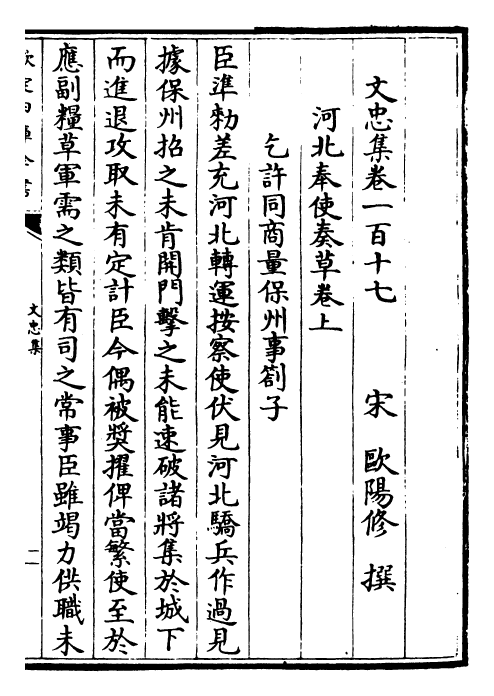 文忠集卷一百十七　　宋　歐陽修　撰
河北奉使奏草卷上
乞許同商量保州事劄子
臣準勑差充河北轉運按察使伏見河北驕兵作過見
據保州招之未肯開門擊之未能速破諸將集於城下
而進退攻取未有定計臣今偶被奬擢俾當繁使至於
應副糧草軍需之類皆有司之常事臣雖竭力供職未
欽定四庫全書
文忠集
二